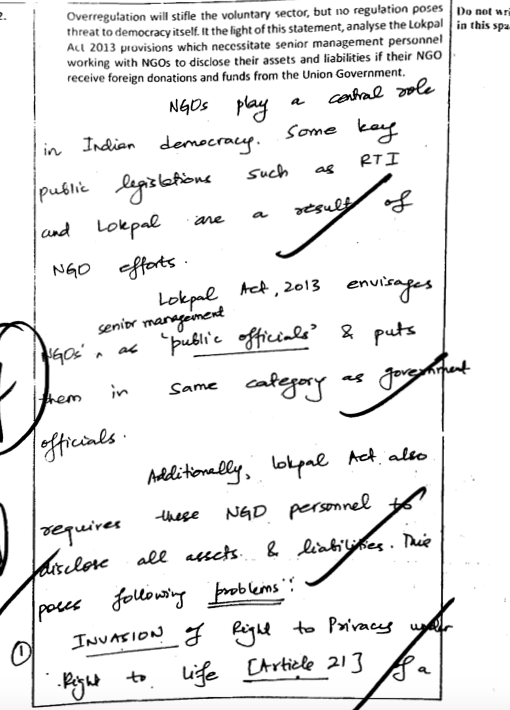 2.
Overregulation will stifle the voluntary sector, but no regulation poses
threat to democracy itself. It the light of this statement, analyse the Lokpal
Act 2013 provisions which necessitate senior management personnel
working with NGOs to disclose their assets and liabilities if their NGO
receive foreign donations and funds from the Union Government.
Do not wri
in this spa
NGOs play a central role
in Indian democracy. Some key
public legislations such as RTI
and Lokpal are a result of
NGO efforts.
Lokpal Act, 2013 envisages
senior management
NGOs' ^ as 'public officials' & puts
them in same category as government
officials.
Additionally, lokpal Act also
requires these NGO personnel to
disclose all assets & liabilities. This
poses following problems:
① INVASION of Right to Privacy under
Right to life [Article 21] of a